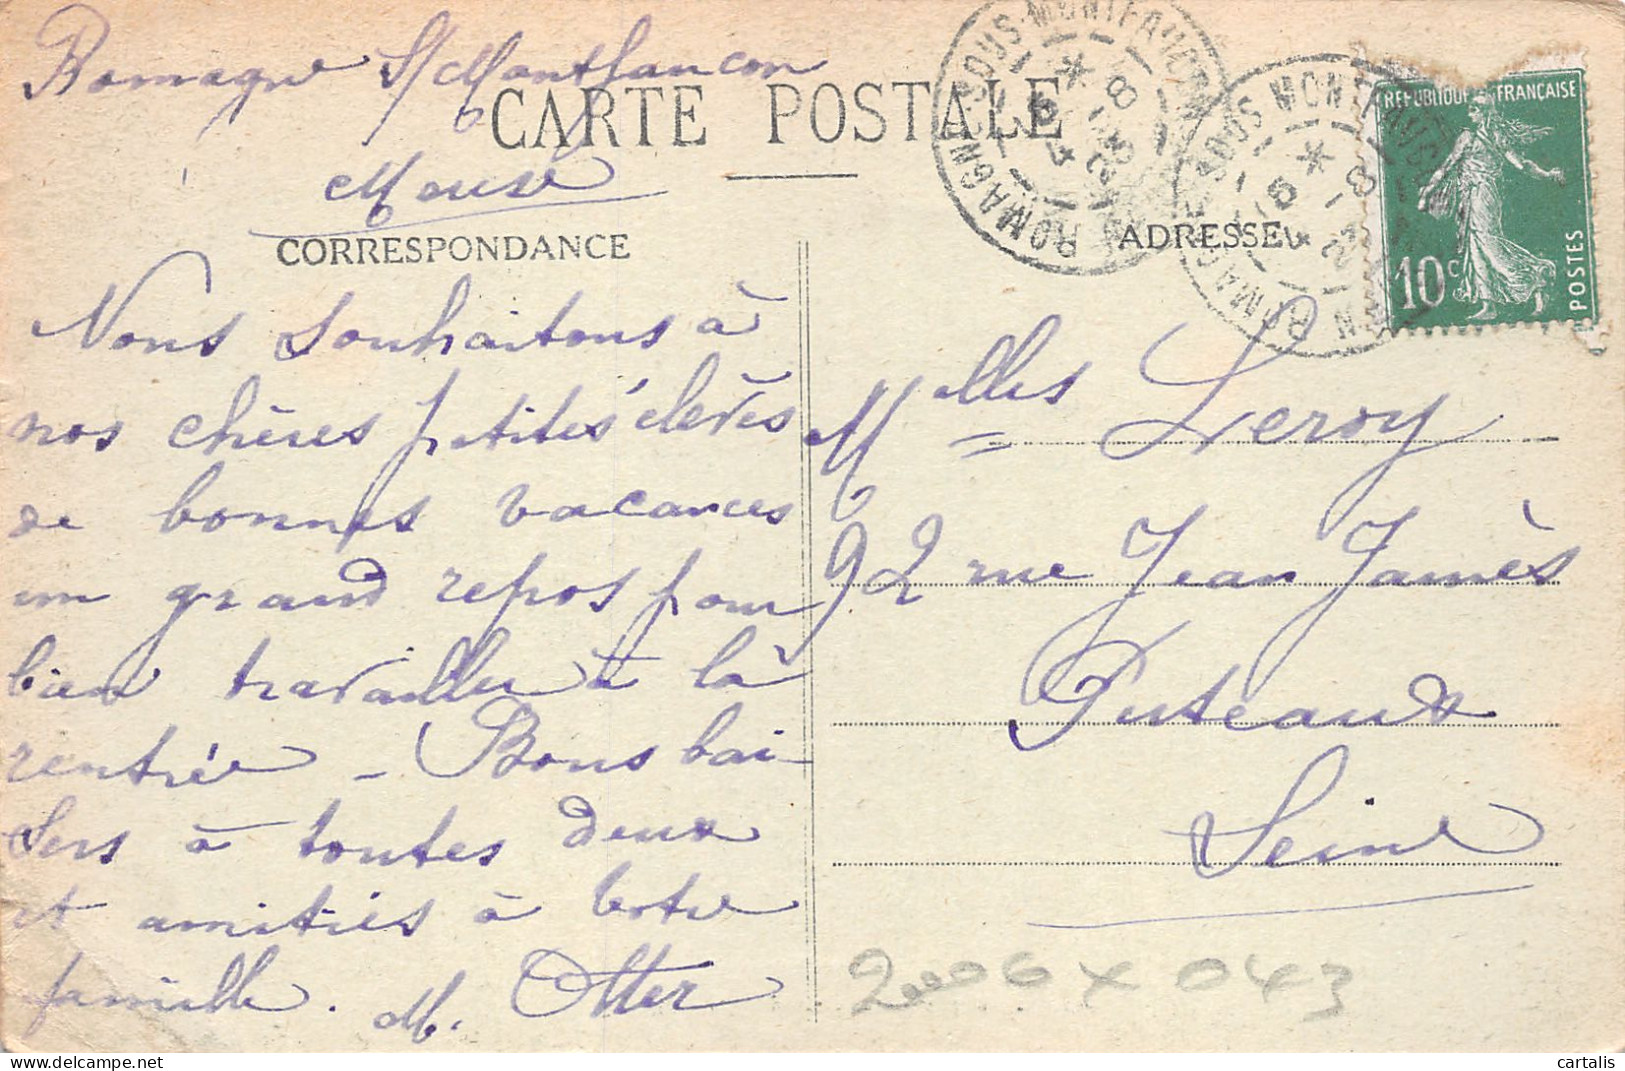 Romagne s/ Montfaucon
Meuse
CARTE POSTALE
CORRESPONDANCE
ADRESSE
ROMAGNE SOUS MONTFAUCON
ROMAGNE SOUS MONTFAUCON
RÉPUBLIQUE FRANÇAISE
10c
POSTES
Nous souhaitons à
nos chères petites élèves
de bonnes vacances
un grand repos pour
bien travailler à la
rentrée - Bons bai-
sers à toutes deux
et amitiés à votre
famille. M. Otter
Melles Leroy
92 rue Jean Jaurès
Puteaux
Seine
2006 x 043
cartalis